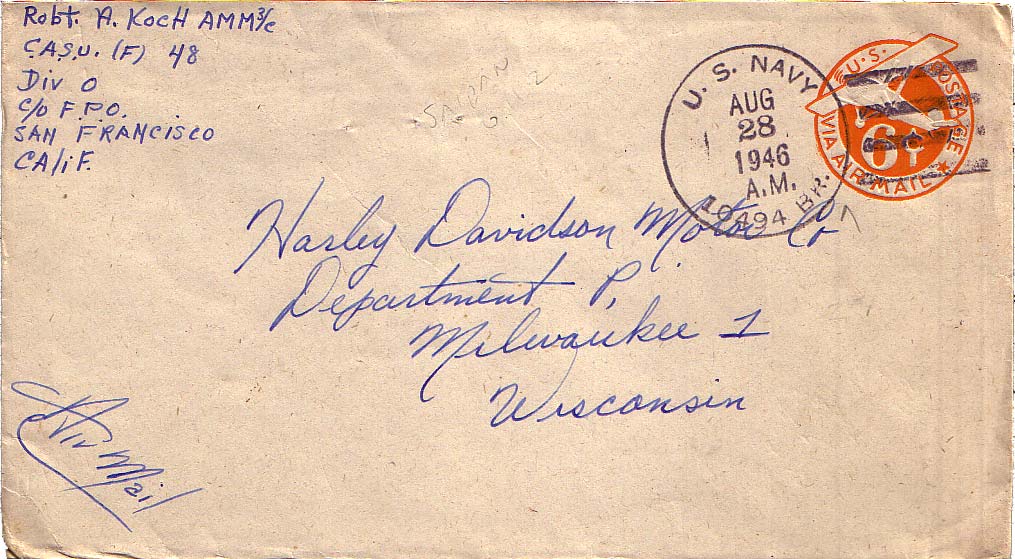 Robt. A. Koch AMM3/c
C.A.S.U. (F) 48
Div O
c/o F.P.O.
SAN FRANCISCO
CAliF.
SAIPAN
U. S. NAVY
AUG
28
1946
A.M.
10494 BR.
U.S. POSTAGE
6¢
VIA AIR MAIL
Harley Davidson Motor Co
Department P,
Milwaukee 1
Wisconsin
Air Mail